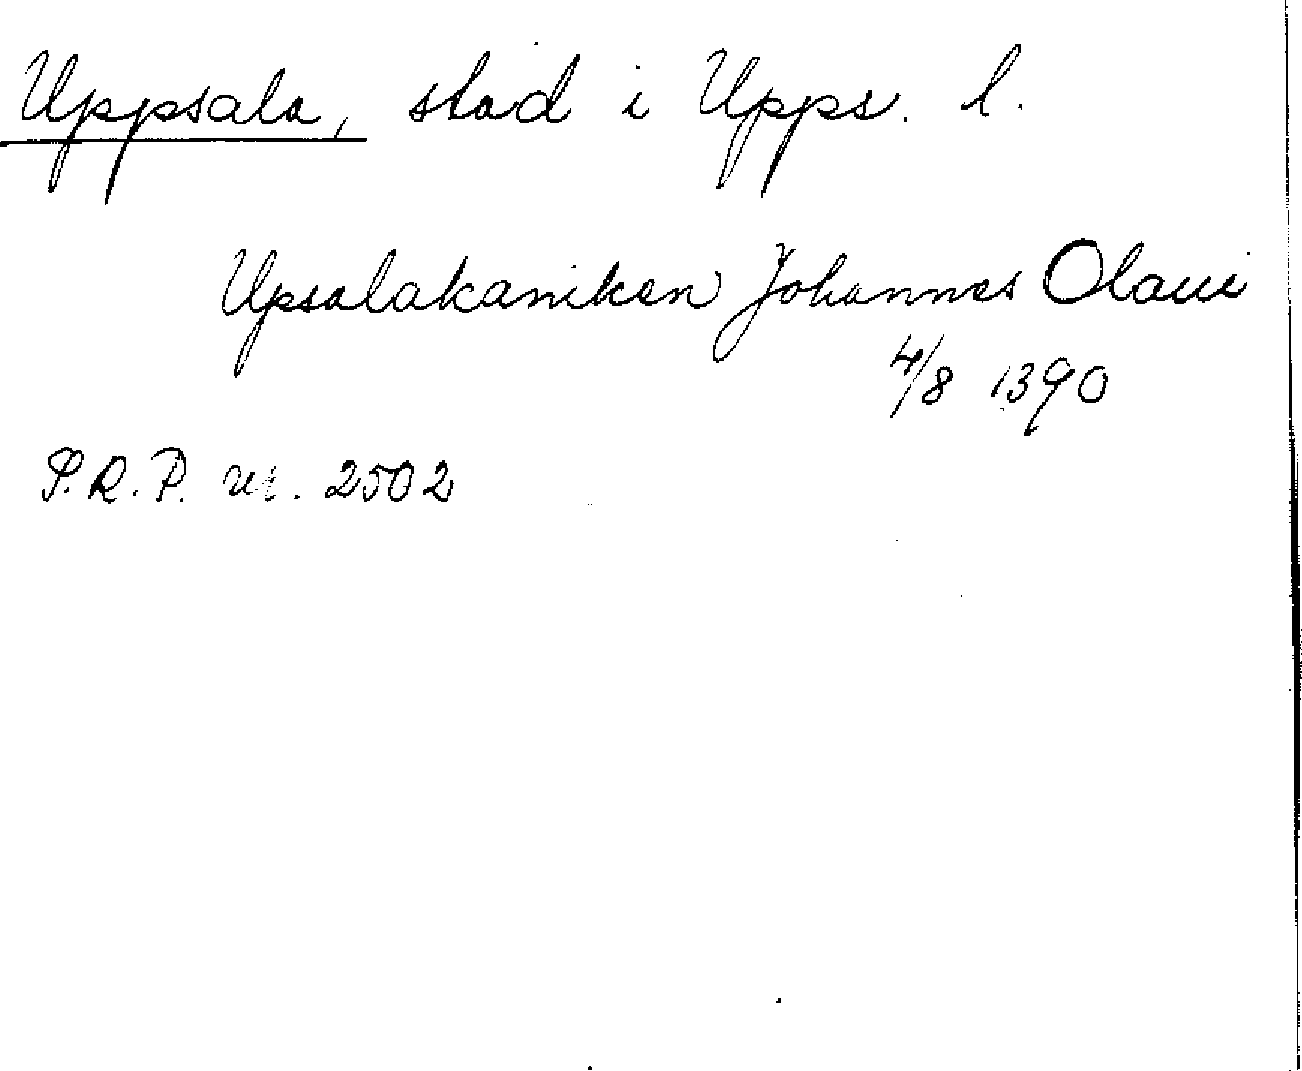 Uppsala, stad i Upps. l.
Upsalakaniken Johannes Olaui
4/8 1390
S.R.P. nr. 2502